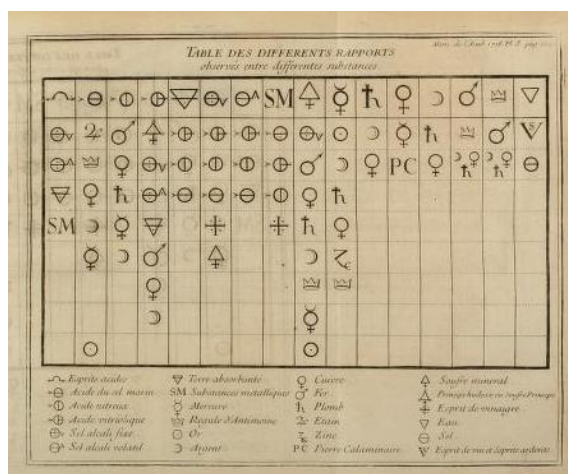 Mem. de l'Acad. 1718. Pl. 8. pag.
TABLE DES DIFFERENTS RAPPORTS
observés entre differentes substances
SM
PC
SM
Esprits acides
Acide du sel marin
Acide nitreux
Acide vitriolique
Sel alcali fixe
Sel alcali volatil
Terre absorbante
SM Substances metalliques
Mercure
Regule d'Antimoine
Or
Argent
Cuivre
Fer
Plomb
Etain
Zinc
PC Pierre Calaminaire
Soufre mineral
Principe huileux ou Soufre Principe
Esprit de vinaigre
Eau
Sel
Esprit de vin et Esprits ardents